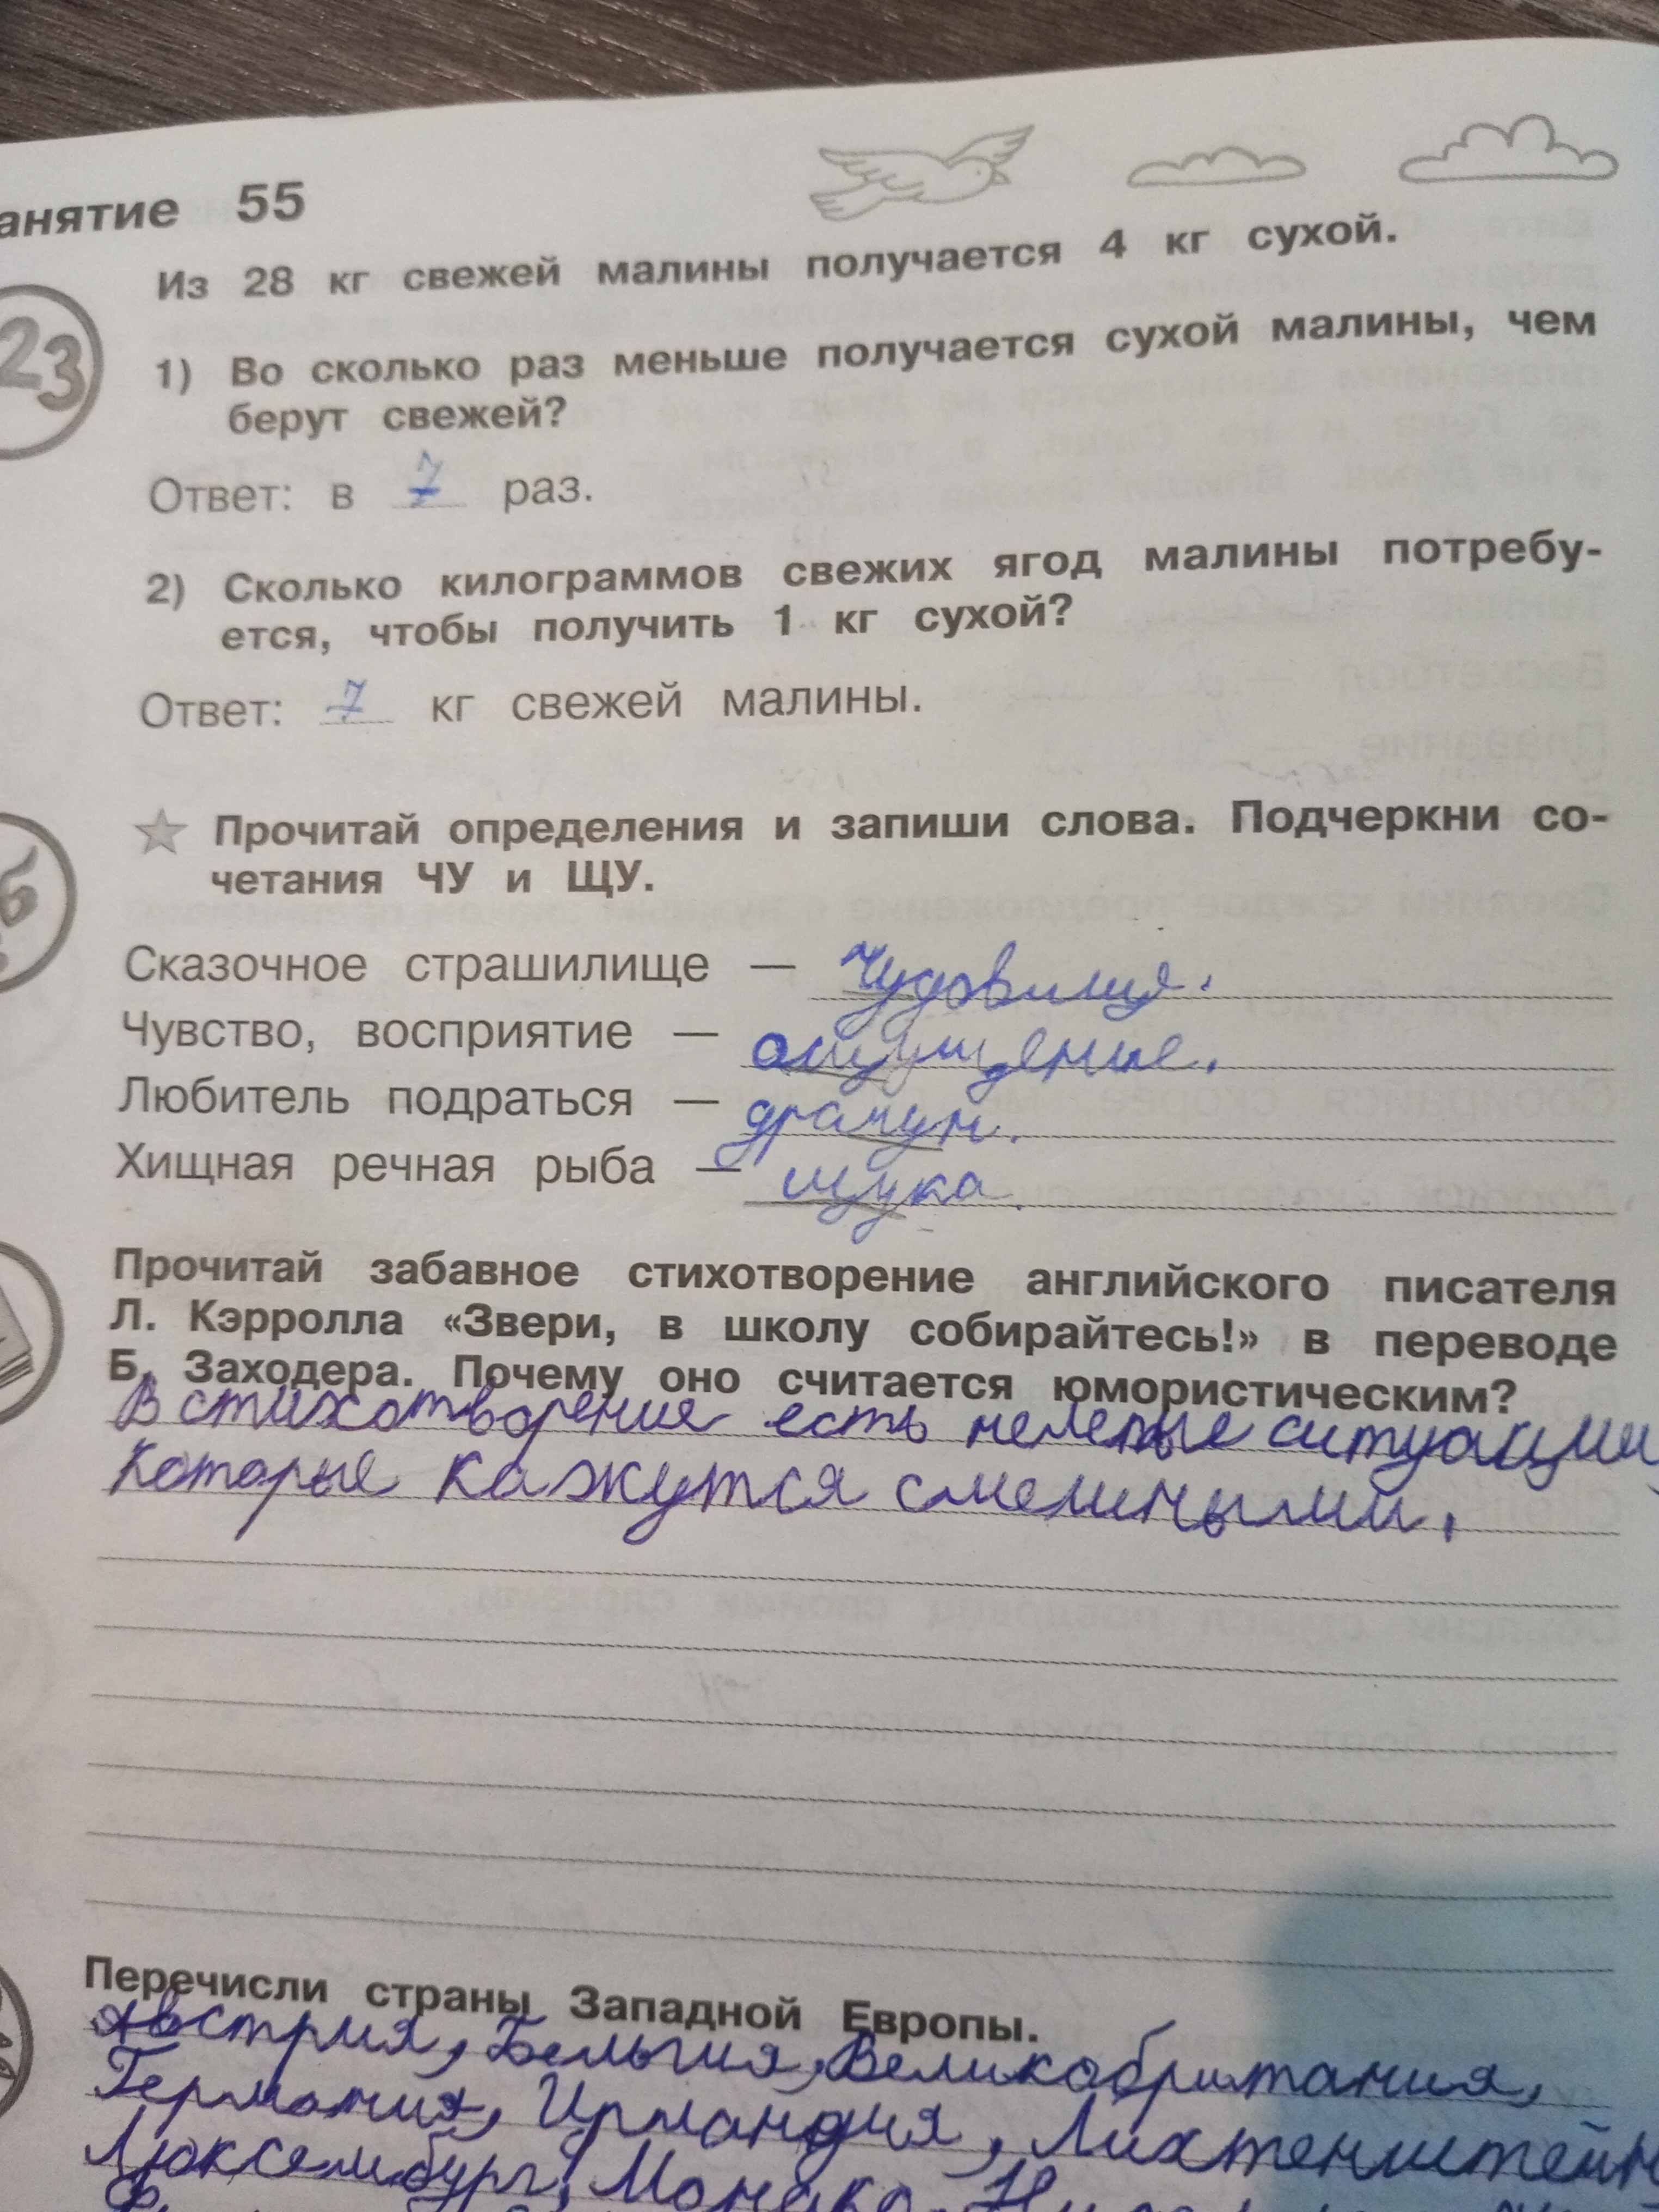 анятие 55
23
Из 28 кг свежей малины получается 4 кг сухой.
1) Во сколько раз меньше получается сухой малины, чем
берут свежей?
Ответ: в 7 раз.
2) Сколько килограммов свежих ягод малины потребу-
ется, чтобы получить 1 кг сухой?
Ответ: 7 кг свежей малины.
Прочитай определения и запиши слова. Подчеркни со-
четания ЧУ и ЩУ.
Сказочное страшилище —
Чувство, восприятие — ощущение.
Любитель подраться — драчун.
Хищная речная рыба — щука.
Прочитай забавное стихотворение английского писателя
Л. Кэрролла «Звери, в школу собирайтесь!» в переводе
Б. Заходера. Почему оно считается юмористическим?
В стихотворение есть нелепые ситуации,
Которые кажутся смешными.
Перечисли страны Западной Европы.
Австрия, Бельгия, Великобритания,
Германия, Ирландия, Лихтенштейн
Люксембург, Монако,